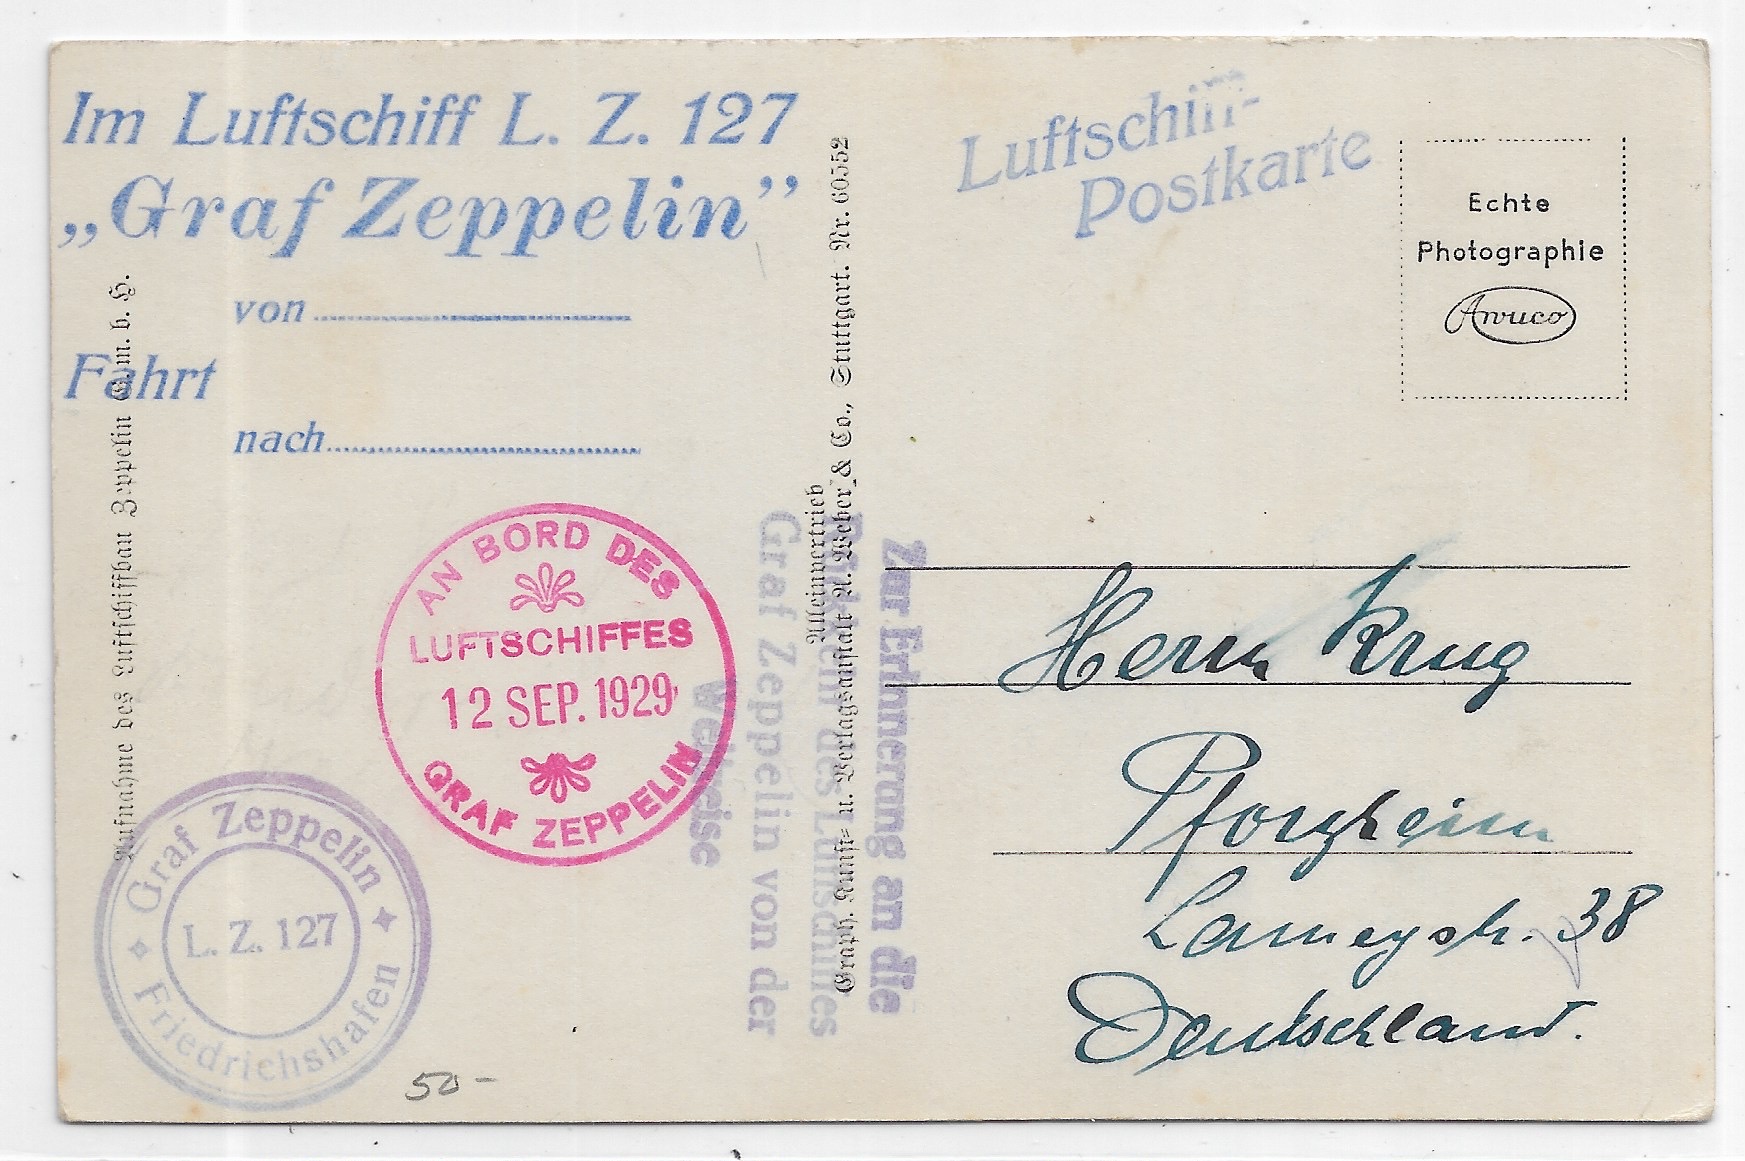 Im Luftschiff L. Z. 127
„Graf Zeppelin”
von
Fahrt
nach
Luftschiff-
Postkarte
Echte
Photographie
Awuco
Aufnahme des Luftschiffbau Zeppelin G. m. b. H.
Alleinvertrieb
Graph. Kunst- u. Verlagsanstalt A. Weber & Co., Stuttgart. Nr. 60552
Zur Erinnerung an die
Rückkehr des Luftschiffes
Graf Zeppelin von der
Weltreise
AN BORD DES
LUFTSCHIFFES
12 SEP. 1929
GRAF ZEPPELIN
Graf Zeppelin
L. Z. 127
Friedrichshafen
Herrn Krug
Pforzheim
Lameystr. 38
Deutschland.
50-